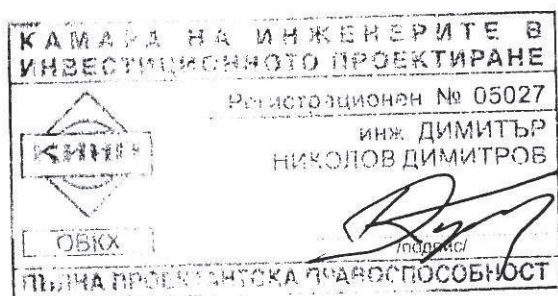 КАМАРА НА ИНЖЕНЕРИТЕ В
ИНВЕСТИЦИОННОТО ПРОЕКТИРАНЕ
Регистрационен № 05027
КИИП
инж. ДИМИТЪР
НИКОЛОВ ДИМИТРОВ
ОВКХ
/подпис/
ПЪЛНА ПРОЕКТАНТСКА ПРАВОСПОСОБНОСТ